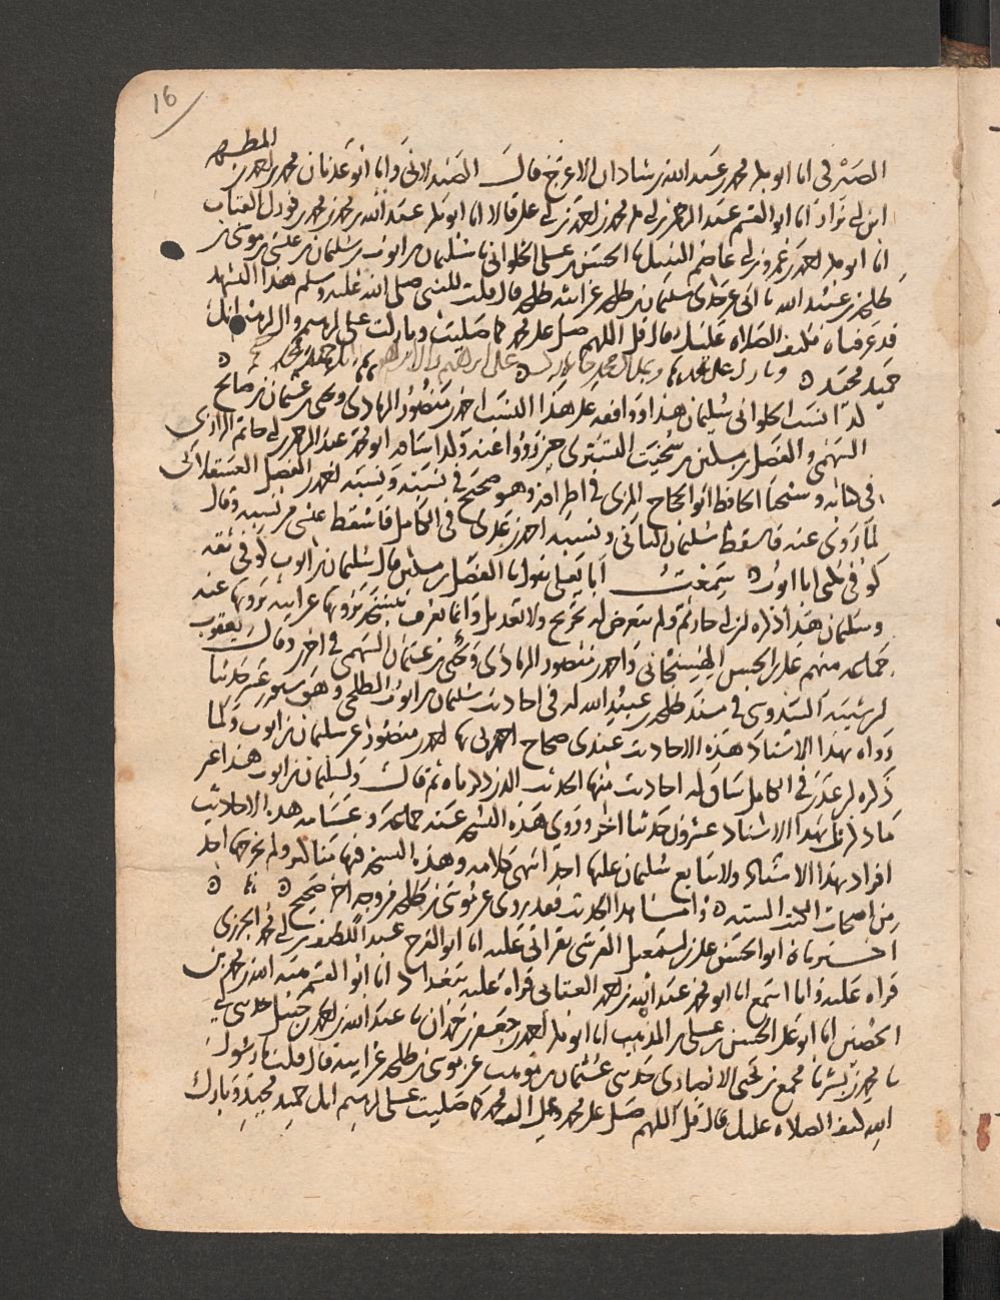 16
المطهر
الصيرفي انا ابو بكر محمد بن عبد الله بن شاذان الاعرج قال الصيدلاني وانا ابو عدنان محمد بن احمد بن
ابي نزار انا ابو القسم عبد الرحمن بن ابي بكر محمد بن احمد بن علي قالا انا ابو بكر عبد الله بن محمد بن محمد بن فورك القباب
انا ابو بكر احمد بن عمرو بن ابي عاصم النبيل نا الحسن بن علي الحلواني نا سليمان بن ايوب بن سليمان بن عيسى بن موسى بن
طلحة بن عبيد الله نا ابي عن جدي سليمان عن طلحة قال قلت للنبي صلى الله عليه وسلم هذا التشهد
قد عرفناه فكيف الصلاة عليك قال قل اللهم صل على محمد كما صليت وباركت على ابرهيم وال ابرهيم انك
حميد مجيد وبارك على محمد وعلى ال محمد كما باركت على ابراهيم وال ابراهيم انك حميد مجيد
كذا نسب الحلواني سليمان هذا ووافقه على هذا النسب احمد بن منصور الرمادي ويحيى بن عثمان بن صالح
السهمي والفضل بن سكين بن سخيت السندي حين رووا عنه وكذا سماه ابو محمد عبد الرحمن بن ابي حاتم الرازي
في كتابه وشيخنا الحافظ ابو الحجاج المزي في اطرافه وهو صحيح في نسبه ونسبه احمد بن الفضل العسقلاني
لما روى عنه فاسقط سليمان الثاني ونسبه احمد بن عدي في الكامل فاسقط عيسى من نسبه وقال
كوفي يكنى ابا ايوب سمعت ابا يعلى يقول نا الفضل بن سكين قال سليمان بن ايوب كوفي ثقة
وسليمان هذا ذكره ابن ابي حاتم ولم يتعرض له بجرح ولا تعديل وانما يعرف بنسخة يرويها عن ابيه يرويها عنه
جماعة منهم علي بن الحسن الهسنجاني واحمد بن منصور الرمادي ويحيى بن عثمان السهمي في اخرين وقال يعقوب
بن شيبة السدوسي في مسند طلحة بن عبيد الله له في احاديث سليمان بن ايوب الطلحي وهي سبعة عشر حديثا
رواه بهذا الاسناد هذه الاحاديث عندي صحاح اخبرني بها احمد بن منصور عن سليمان بن ايوب ولما
ذكره ابن عدي في الكامل ساق له احاديث منها الحديث الذي ذكرناه ثم قال ولسليمان بن ايوب هذا غير
ما ذكرت بهذا الاسناد عشرون حديثا اخر وروى هذه النسخة عنه جماعة وعامة هذه الاحاديث
افراد بهذا الاسناد ولا يتابع سليمان عليها احد انتهى كلامه وهذه النسخة فيها مناكير ولم يخرجها احد
من اصحاب الكتب الستة واما هذا الحديث فقد روي عن موسى بن طلحة من وجه اخر صحيح
اخبرناه ابو الحسن علي بن اسمعيل القرشي بقراتي عليه انا ابو الفرج عبد اللطيف بن ابي محمد الجزري
قراة عليه وانا اسمع انا ابو محمد عبد الله بن احمد العتابي قراة عليه ببغداد انا ابو القسم هبة الله بن محمد بن
الحصين انا ابو علي الحسن بن علي بن المذهب انا ابو بكر احمد بن جعفر بن حمدان نا عبد الله بن احمد بن حنبل حدثني ابي
نا محمد بن بشر نا مجمع بن يحيى الانصاري حدثني عثمان بن موهب عن موسى بن طلحة عن ابيه قال قلنا يا رسول
الله كيف الصلاة عليك قال قل اللهم صل على محمد وعلى ال محمد كما صليت على ابرهيم انك حميد مجيد وبارك